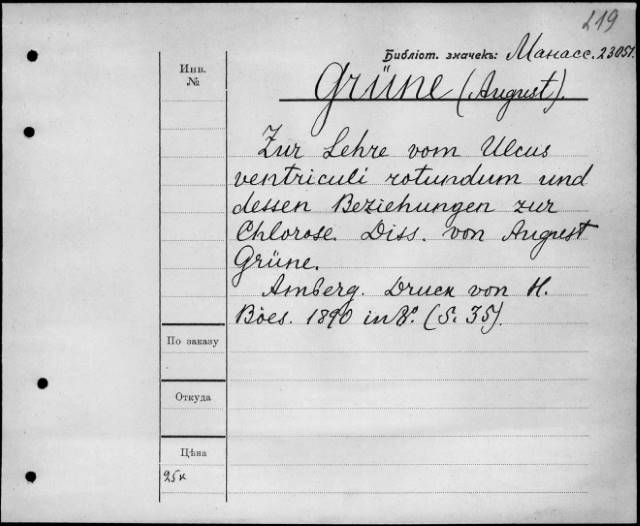 219
Библіот. значекъ: Манасс. 23051.
Инв. №
Grüne (August).
Zur Lehre vom Ulcus
ventriculi rotundum und
dessen Beziehungen zur
Chlorose. Diss. von August
Grüne.
Amberg. Druck von H.
Böes. 1890 in 8°. (S. 35).
По заказу
Откуда
Цѣна
25к